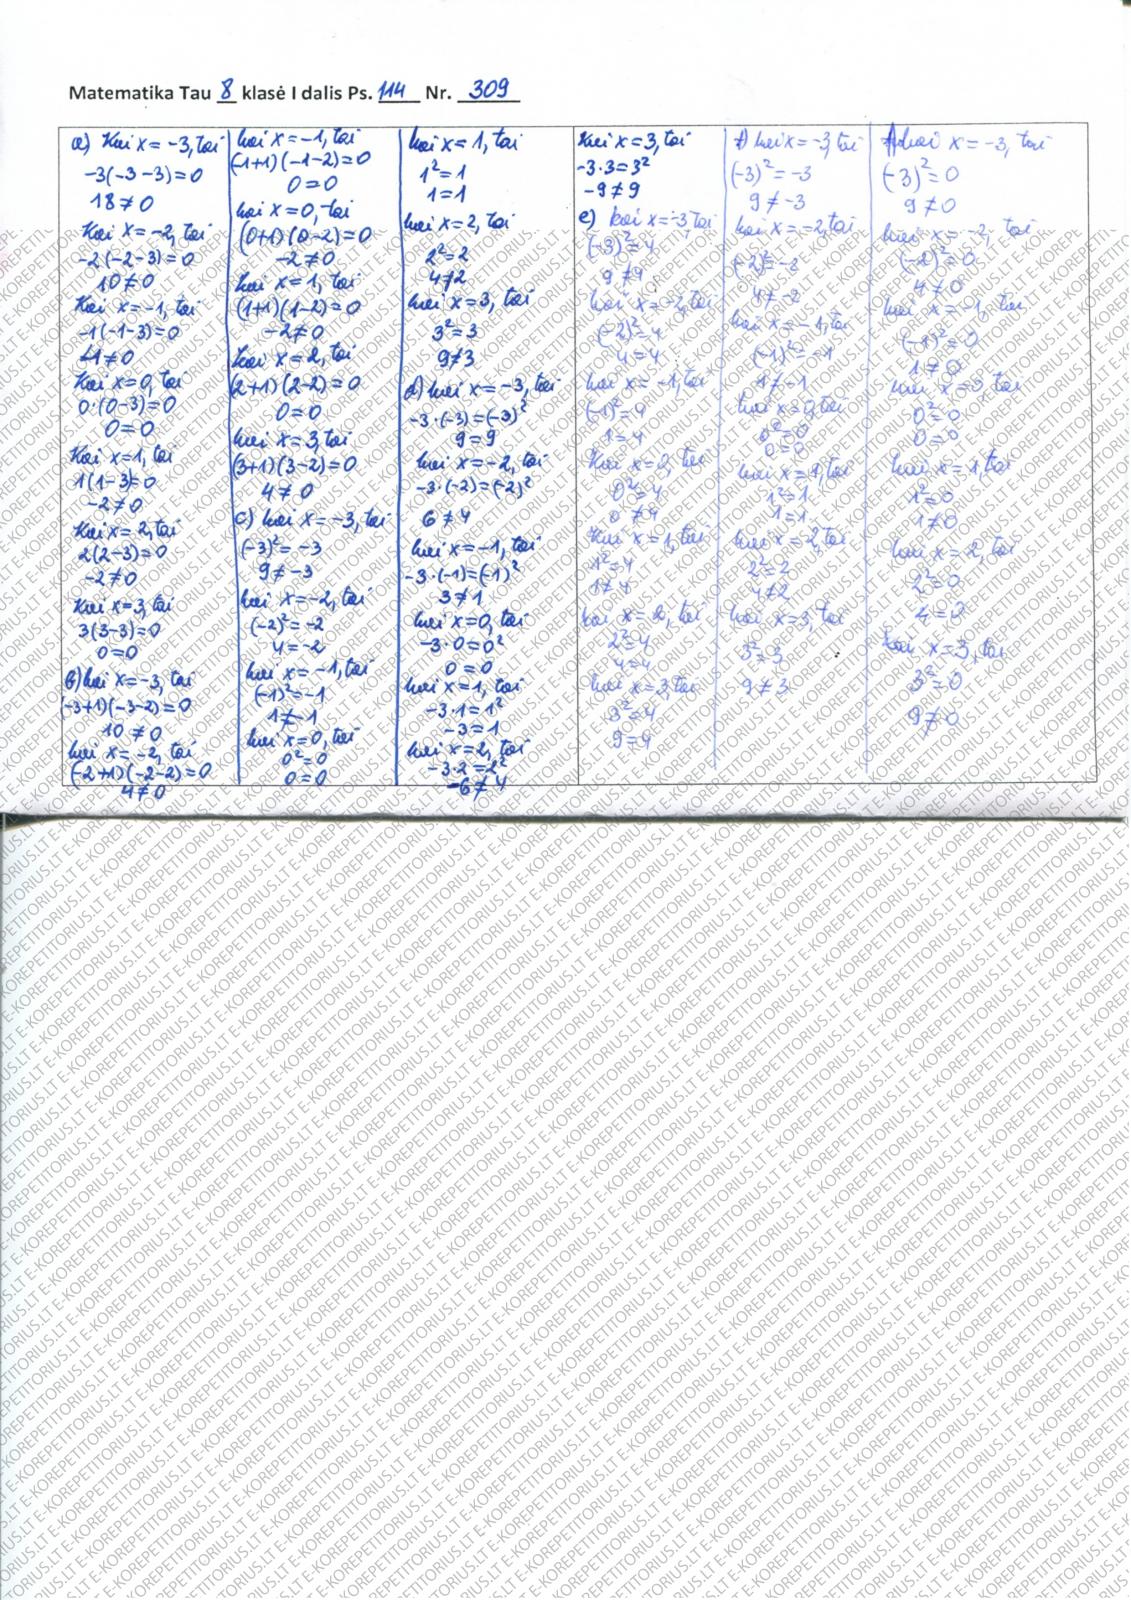 Matematika Tau 8 klasė I dalis Ps. 114 Nr. 309
a) Kai x = -3, tai
-3(-3-3)=0
18≠0
Kai x = -2, tai
-2(-2-3)=0
10≠0
Kai x = -1, tai
-1(-1-3)=0
Kai x = 0, tai
0·(0-3)=0
0=0
Kai x = 1, tai
1(1-3)=0
-2≠0
Kai x = 2, tai
2(2-3)=0
-2≠0
Kai x = 3, tai
3(3-3)=0
0=0
b) kai x = -3, tai
(-3+1)(-3-2)=0
10≠0
kai x = -2, tai
(-2+1)(-2-2)=0
4≠0
kai x = -1, tai
(-1+1)(-1-2)=0
0=0
kai x = 0, tai
(0+1)(0-2)=0
-2≠0
kai x = 1, tai
(1+1)(1-2)=0
-2≠0
kai x = 2, tai
(2+1)(2-2)=0
0=0
kai x = 3, tai
(3+1)(3-2)=0
4≠0
c) kai x = -3, tai
(-3)²=-3
9≠-3
kai x = -2, tai
(-2)²=-2
4=-2
kai x = -1, tai
(-1)²=-1
1≠-1
kai x = 0, tai
0²=0
0=0
kai x = 1, tai
1²=1
1=1
kai x = 2, tai
2²=2
4≠2
kai x = 3, tai
3²=3
9≠3
d) kai x = -3, tai
-3·(-3)=(-3)²
9=9
kai x = -2, tai
-3·(-2)=(-2)²
6≠4
kai x = -1, tai
-3·(-1)=(-1)²
3≠1
kai x = 0, tai
-3·0=0²
0=0
kai x = 1, tai
-3·1=1²
-3=1
kai x = 2, tai
-3·2=2²
-6≠4
Kai x = 3, tai
-3·3=3²
-9≠9
e) kai x = -3, tai
(-3)²=4
9≠4
kai x = -2, tai
(-2)²=4
4=4
kai x = -1, tai
(-1)²=4
1=4
Kai x = 0, tai
0²=4
0≠4
Kai x = 1, tai
1²=4
1≠4
kai x = 2, tai
2²=4
4=4
kai x = 3, tai
3²=4
9=4
f) kai x = -3, tai
(-3)²=-3
9≠-3
kai x = -2, tai
(-2)²=-2
4≠-2
kai x = -1, tai
(-1)²=-1
1≠-1
kai x = 0, tai
0²=0
0=0
kai x = 1, tai
1²=1
1=1
kai x = 2, tai
2²=2
4≠2
kai x = 3, tai
3²=3
9≠3
kai x = -3, tai
(-3)²=0
9≠0
kai x = -2, tai
(-2)²=0
4≠0
kai x = -1, tai
(-1)²=0
1≠0
kai x = 0 tai
0²=0
0=0
kai x = 1, tai
1²=0
1≠0
kai x = 2, tai
2²=0
4=0
kai x = 3, tai
3²=0
9≠0
E-KOREPETITORIUS.LT